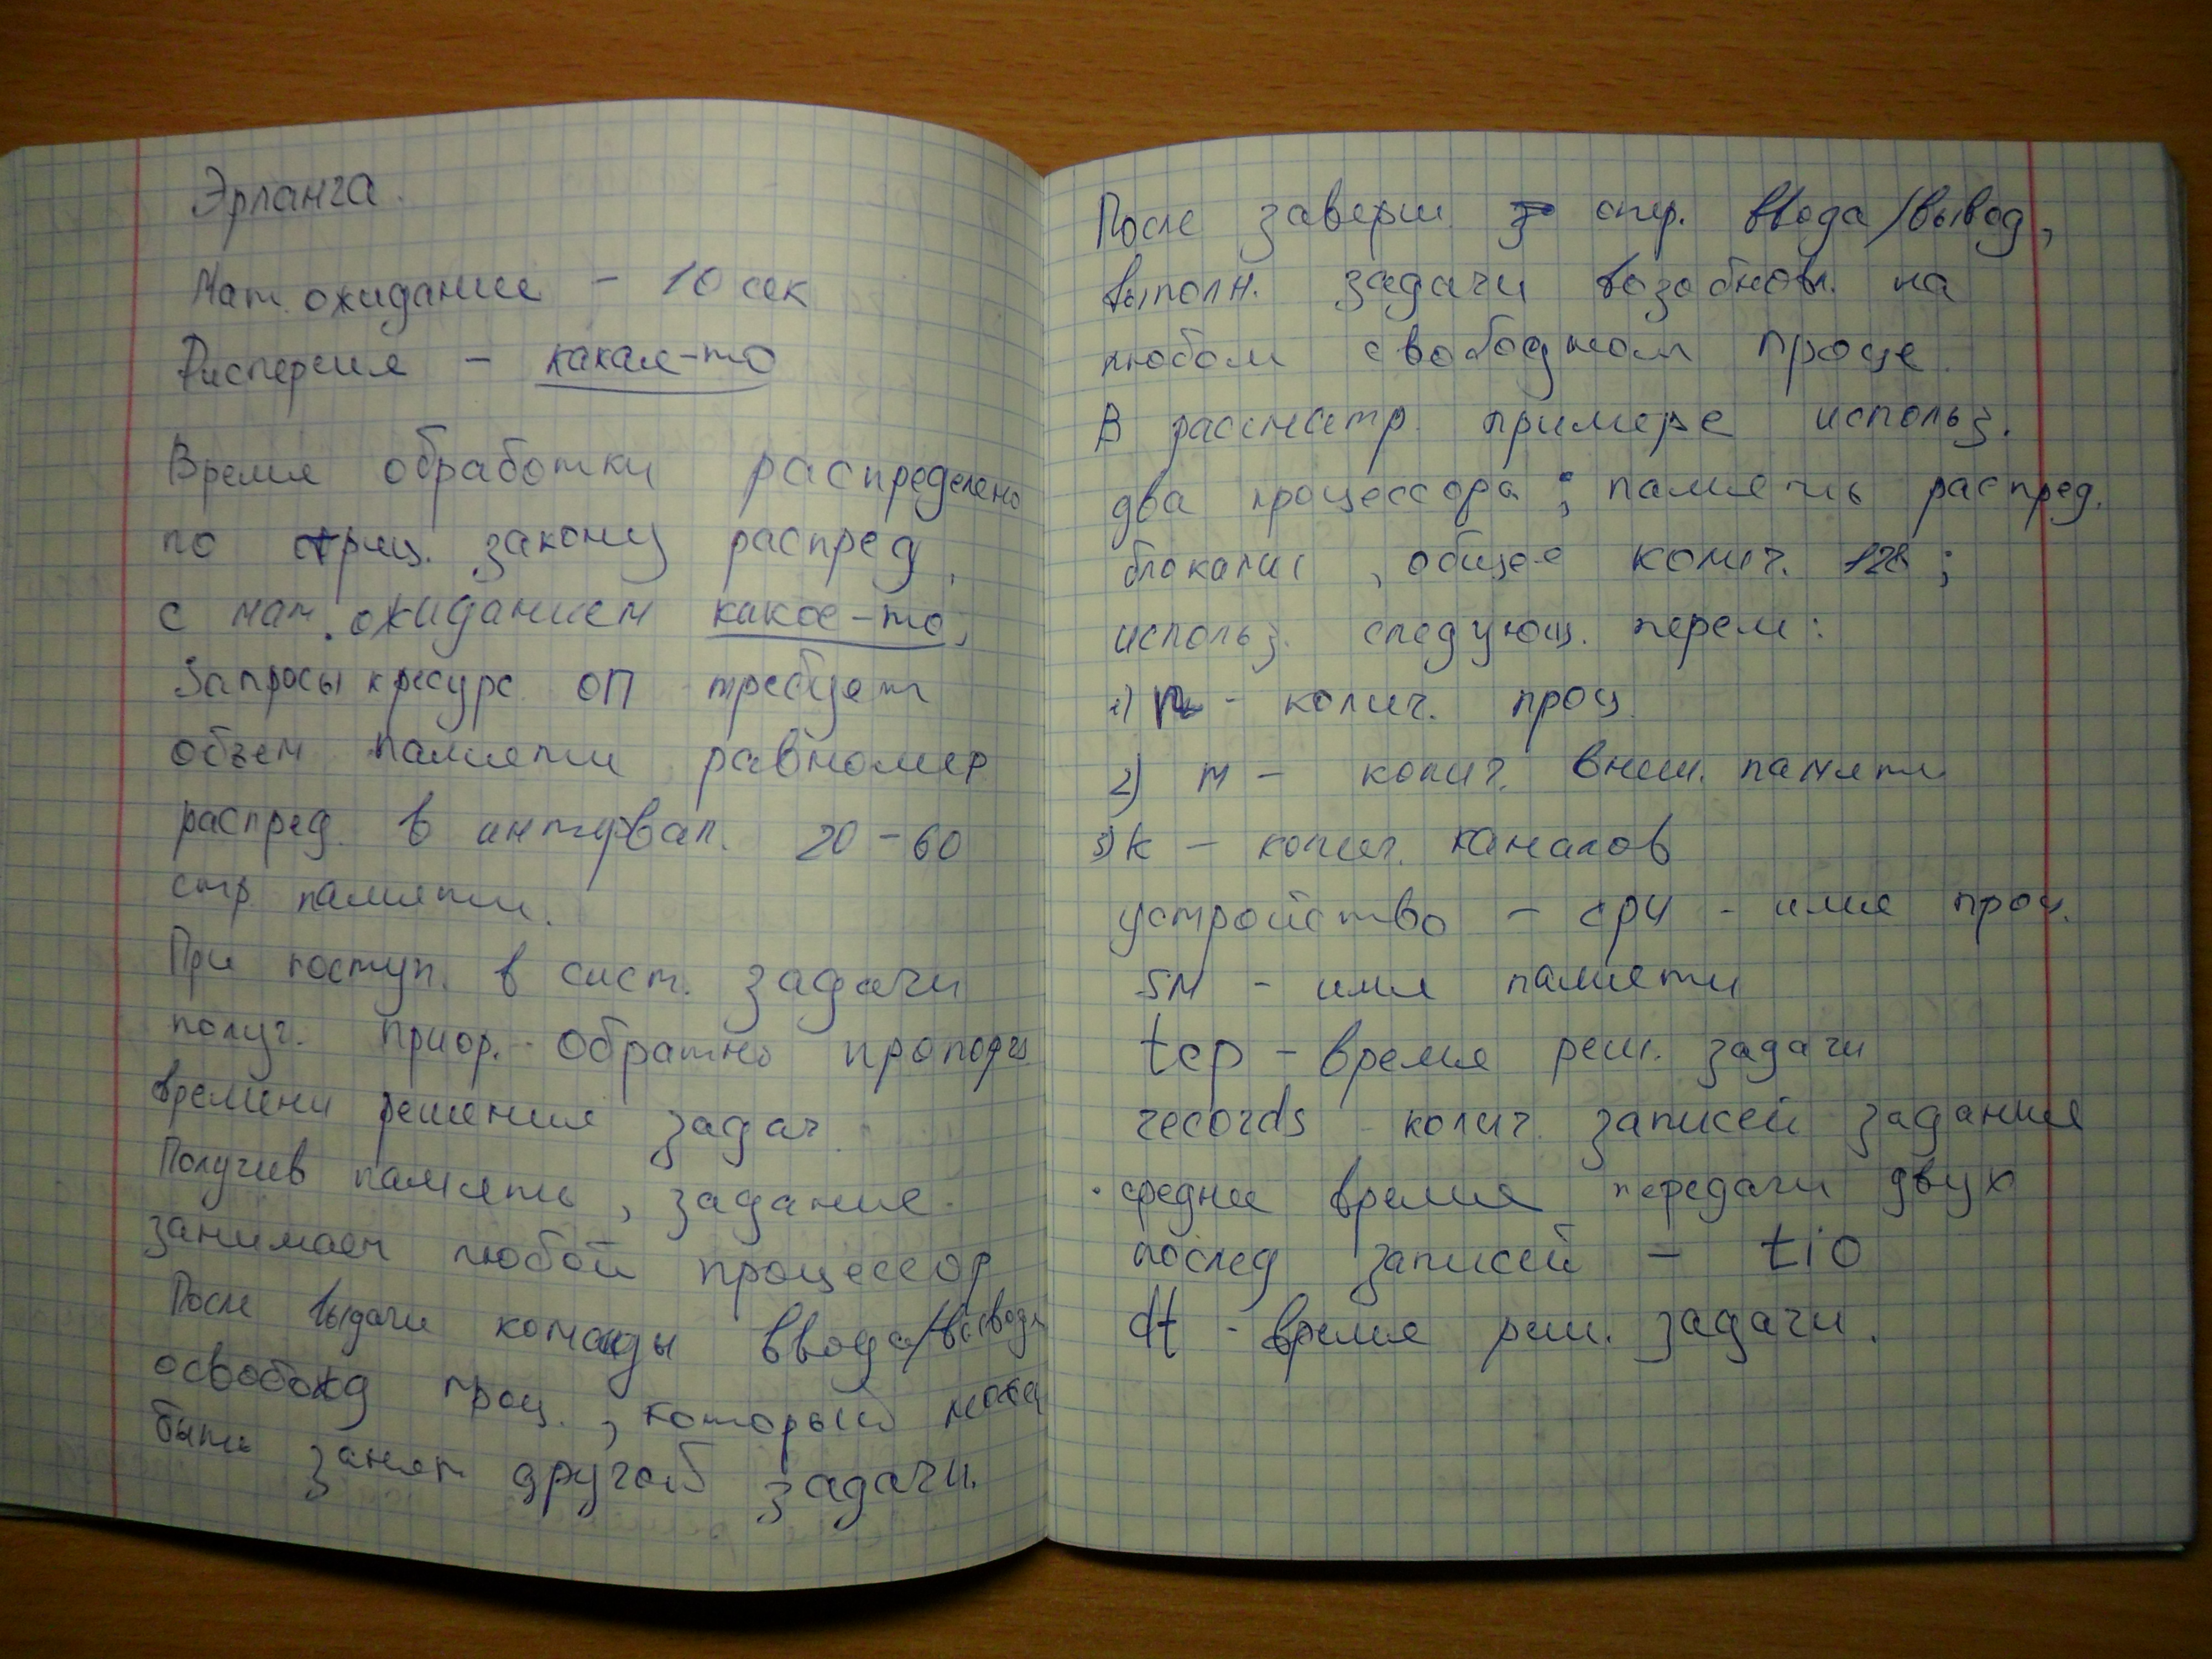 Эрланга.
Мат. ожидание - 10 сек
Дисперсия - какая-то
Время обработки распределено
по отриц. закону распред,
с мат. ожиданием какое-то,
Запросы к ресурс. ОП требует
объем памяти равномер
распред. в интервал. 20-60
стр памяти.
При поступ. в сист. задачи
получ. приор. обратно пропорц.
времени решения задач
Получив память, задание
занимает любой процессор
После выдачи команды ввода/вывода
освобожд проц., который может
быть занят другой задачи.
После заверш опер. ввода/вывод,
выполн. задачи возобновл. на
любом свободном проце.
В рассматр. примере использ.
два процессора; память распред.
блоками, общее колич. 128;
использ. следующ. перем:
1) n - колич. проц.
2) m - колич. внеш. памяти
3) k - колич. каналов
устройство - cpu - имя проц.
SM - имя памяти
tcp - время реш. задачи
records колич. записей задания
средне время передачи двух
послед записей - tio
dt - время реш. задачи.